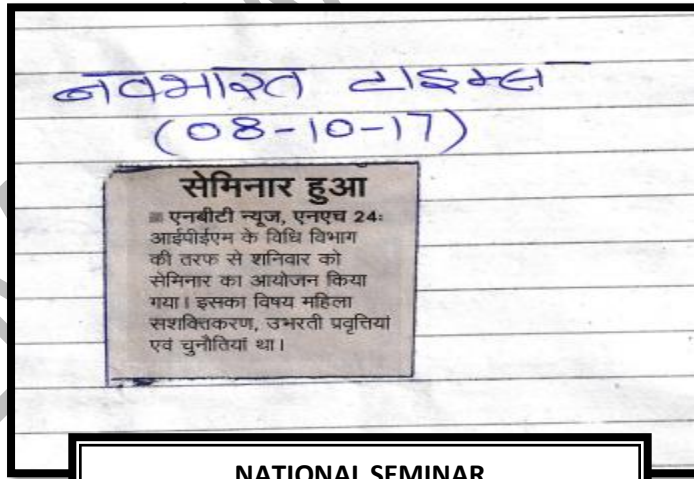 नवभारत टाइम्स
(08-10-17)
सेमिनार हुआ
एनबीटी न्यूज, एनएच 24:
आईपीईएम के विधि विभाग
की तरफ से शनिवार को
सेमिनार का आयोजन किया
गया। इसका विषय महिला
सशक्तिकरण, उभरती प्रवृत्तियां
एवं चुनौतियां था।
NATIONAL SEMINAR